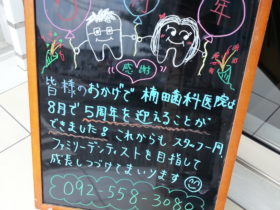 年
感謝
皆様のおかげで楠歯科医院は
8月で5周年を迎えることが
できました!これからもスタッフ一同、
ファミリーデンティストを目指して
成長しつづけてまいります
092-558-3080